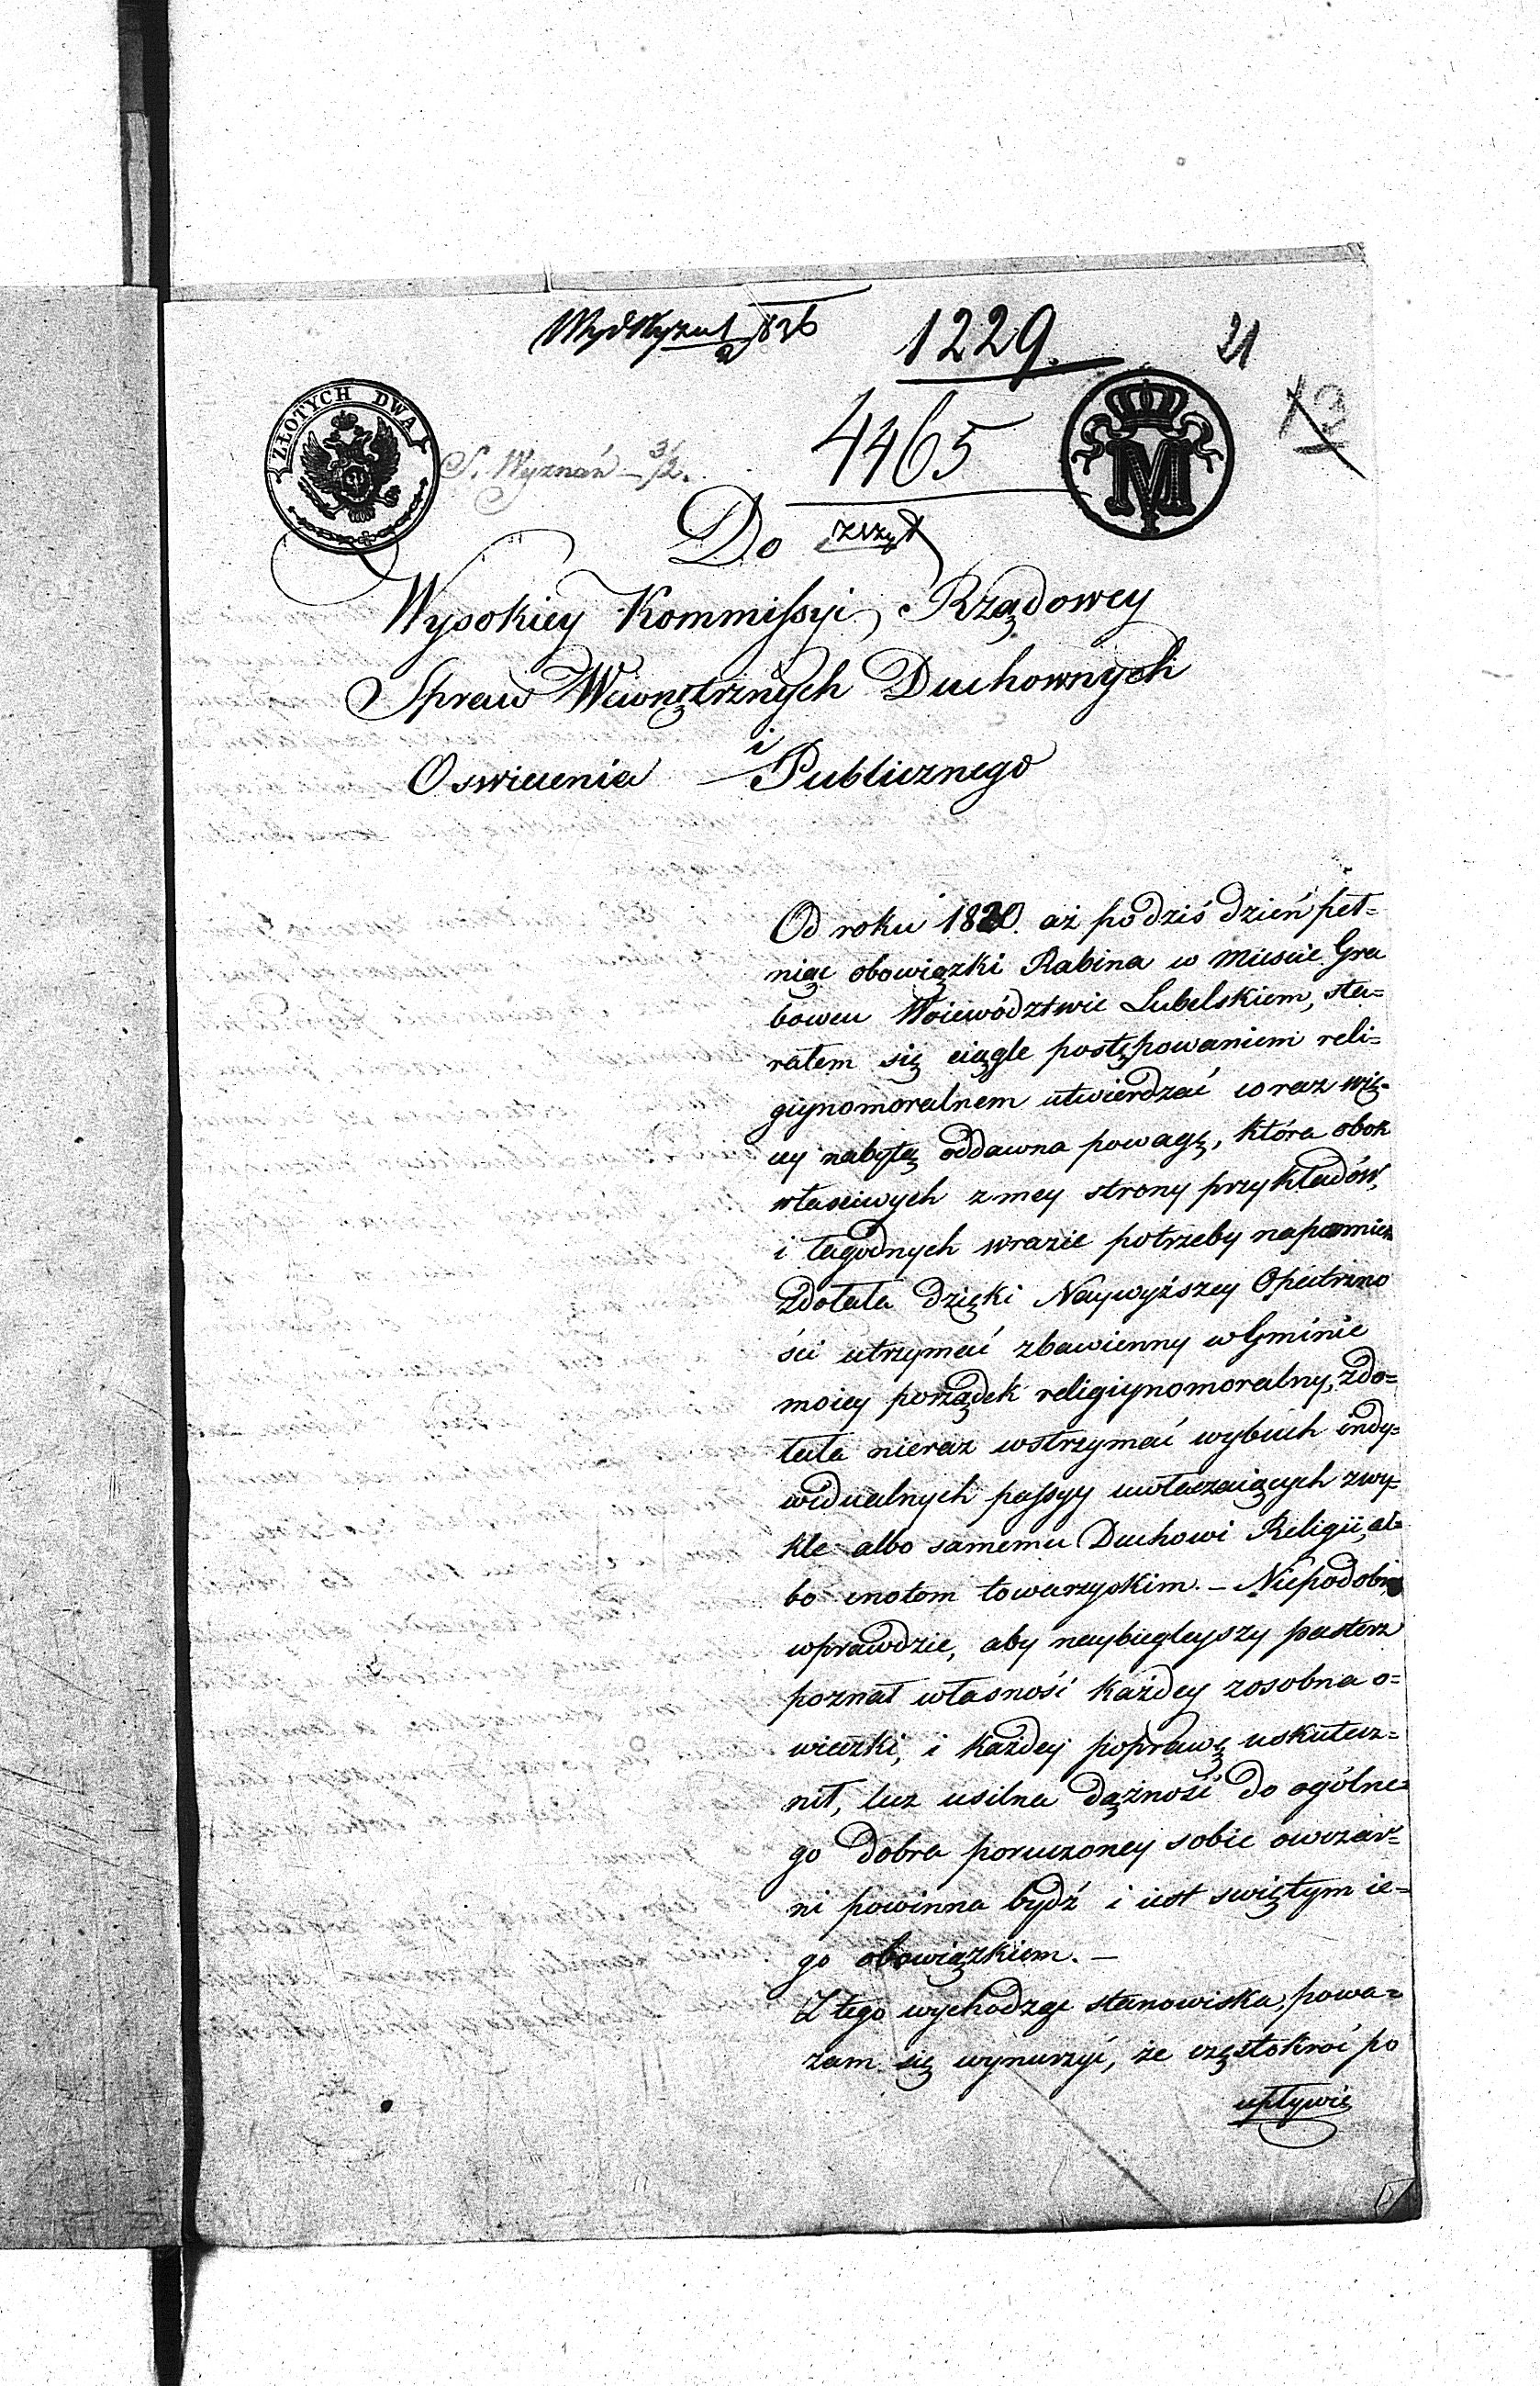 1836
1229.
21
ZŁOTYCH DWA
S. Wyznań - 3/2.
4465
M
Do
Wysokiey Kommissyi Rządowey
Spraw Wewnętrznych Duchownych
i
Oswiecenia Publicznego
Od roku 1820. aż po dziś dzień peł=
niąc obowiązki Rabina w miescie Gra
bowcu Woiewództwie Lubelskiem, sta=
rałem się ciągle postępowaniem reli=
giynomoralnem utwierdzać coraz wię=
cy nabytą oddawna powagę, która obok
własciwych z mey strony przykładów,
i łagodnych wrazie potrzeby napomnień
zdołała dzięki Naywyższey Opatrzno
ści utrzymać zbawienny w Gminie
moiey porządek religiynomoralny, zdo=
łała nieraz wstrzymać wybuch indy=
widualnych passyy uwłaczaiących zwy=
kle albo samemu Duchowi Religii, al=
bo cnotom towarzyskim. - Niepodobna
wprawdzie, aby naybiegleyszy pasterz
poznał własność każdey zosobna o=
wieczki, i każdey poprawę uskutecz=
nił, lecz usilna dążność do ogólne=
go dobra poruczoney sobie owczar=
ni powinna bydź i iest swiętym ie=
go obowiązkiem. -
Z tego wychodząc stanowiska, powa=
zam się wynurzyć, że częstokroć po
upływie